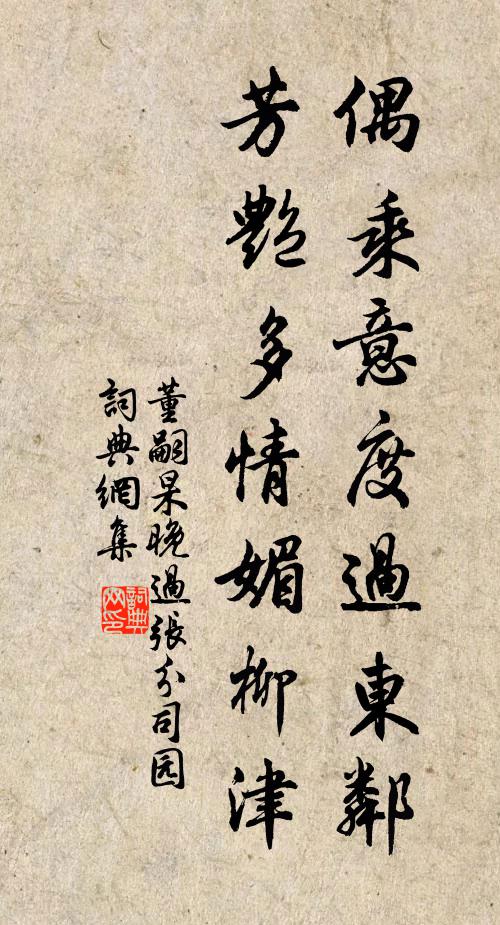 偶乘意度過東鄰
芳艷多情媚柳津
董嗣杲晚過張分司园
詞典網集
詞典
网印